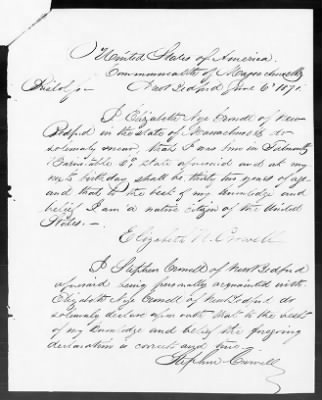 United States of America.
Commonwealth of Massachusetts
Bristol ss— New Bedford June 6th 1871.
I Elizabeth Nye Crowell of New
Bedford in the state of Massachusetts do
solemnly swear, that I was born in Falmouth
Barnstable Co. state aforesaid and at my
next birthday shall be thirty two years of age
and that to the best of my knowledge and
belief I am a native citizen of the United
States.—
Elizabeth N. Crowell
I Stephen Crowell of New Bedford
aforesaid being personally acquainted with
Elizabeth Nye Crowell of New Bedford do
solemnly declare upon oath that to the best
of my knowledge and belief the foregoing
declaration is correct and true.—
Stephen Crowell